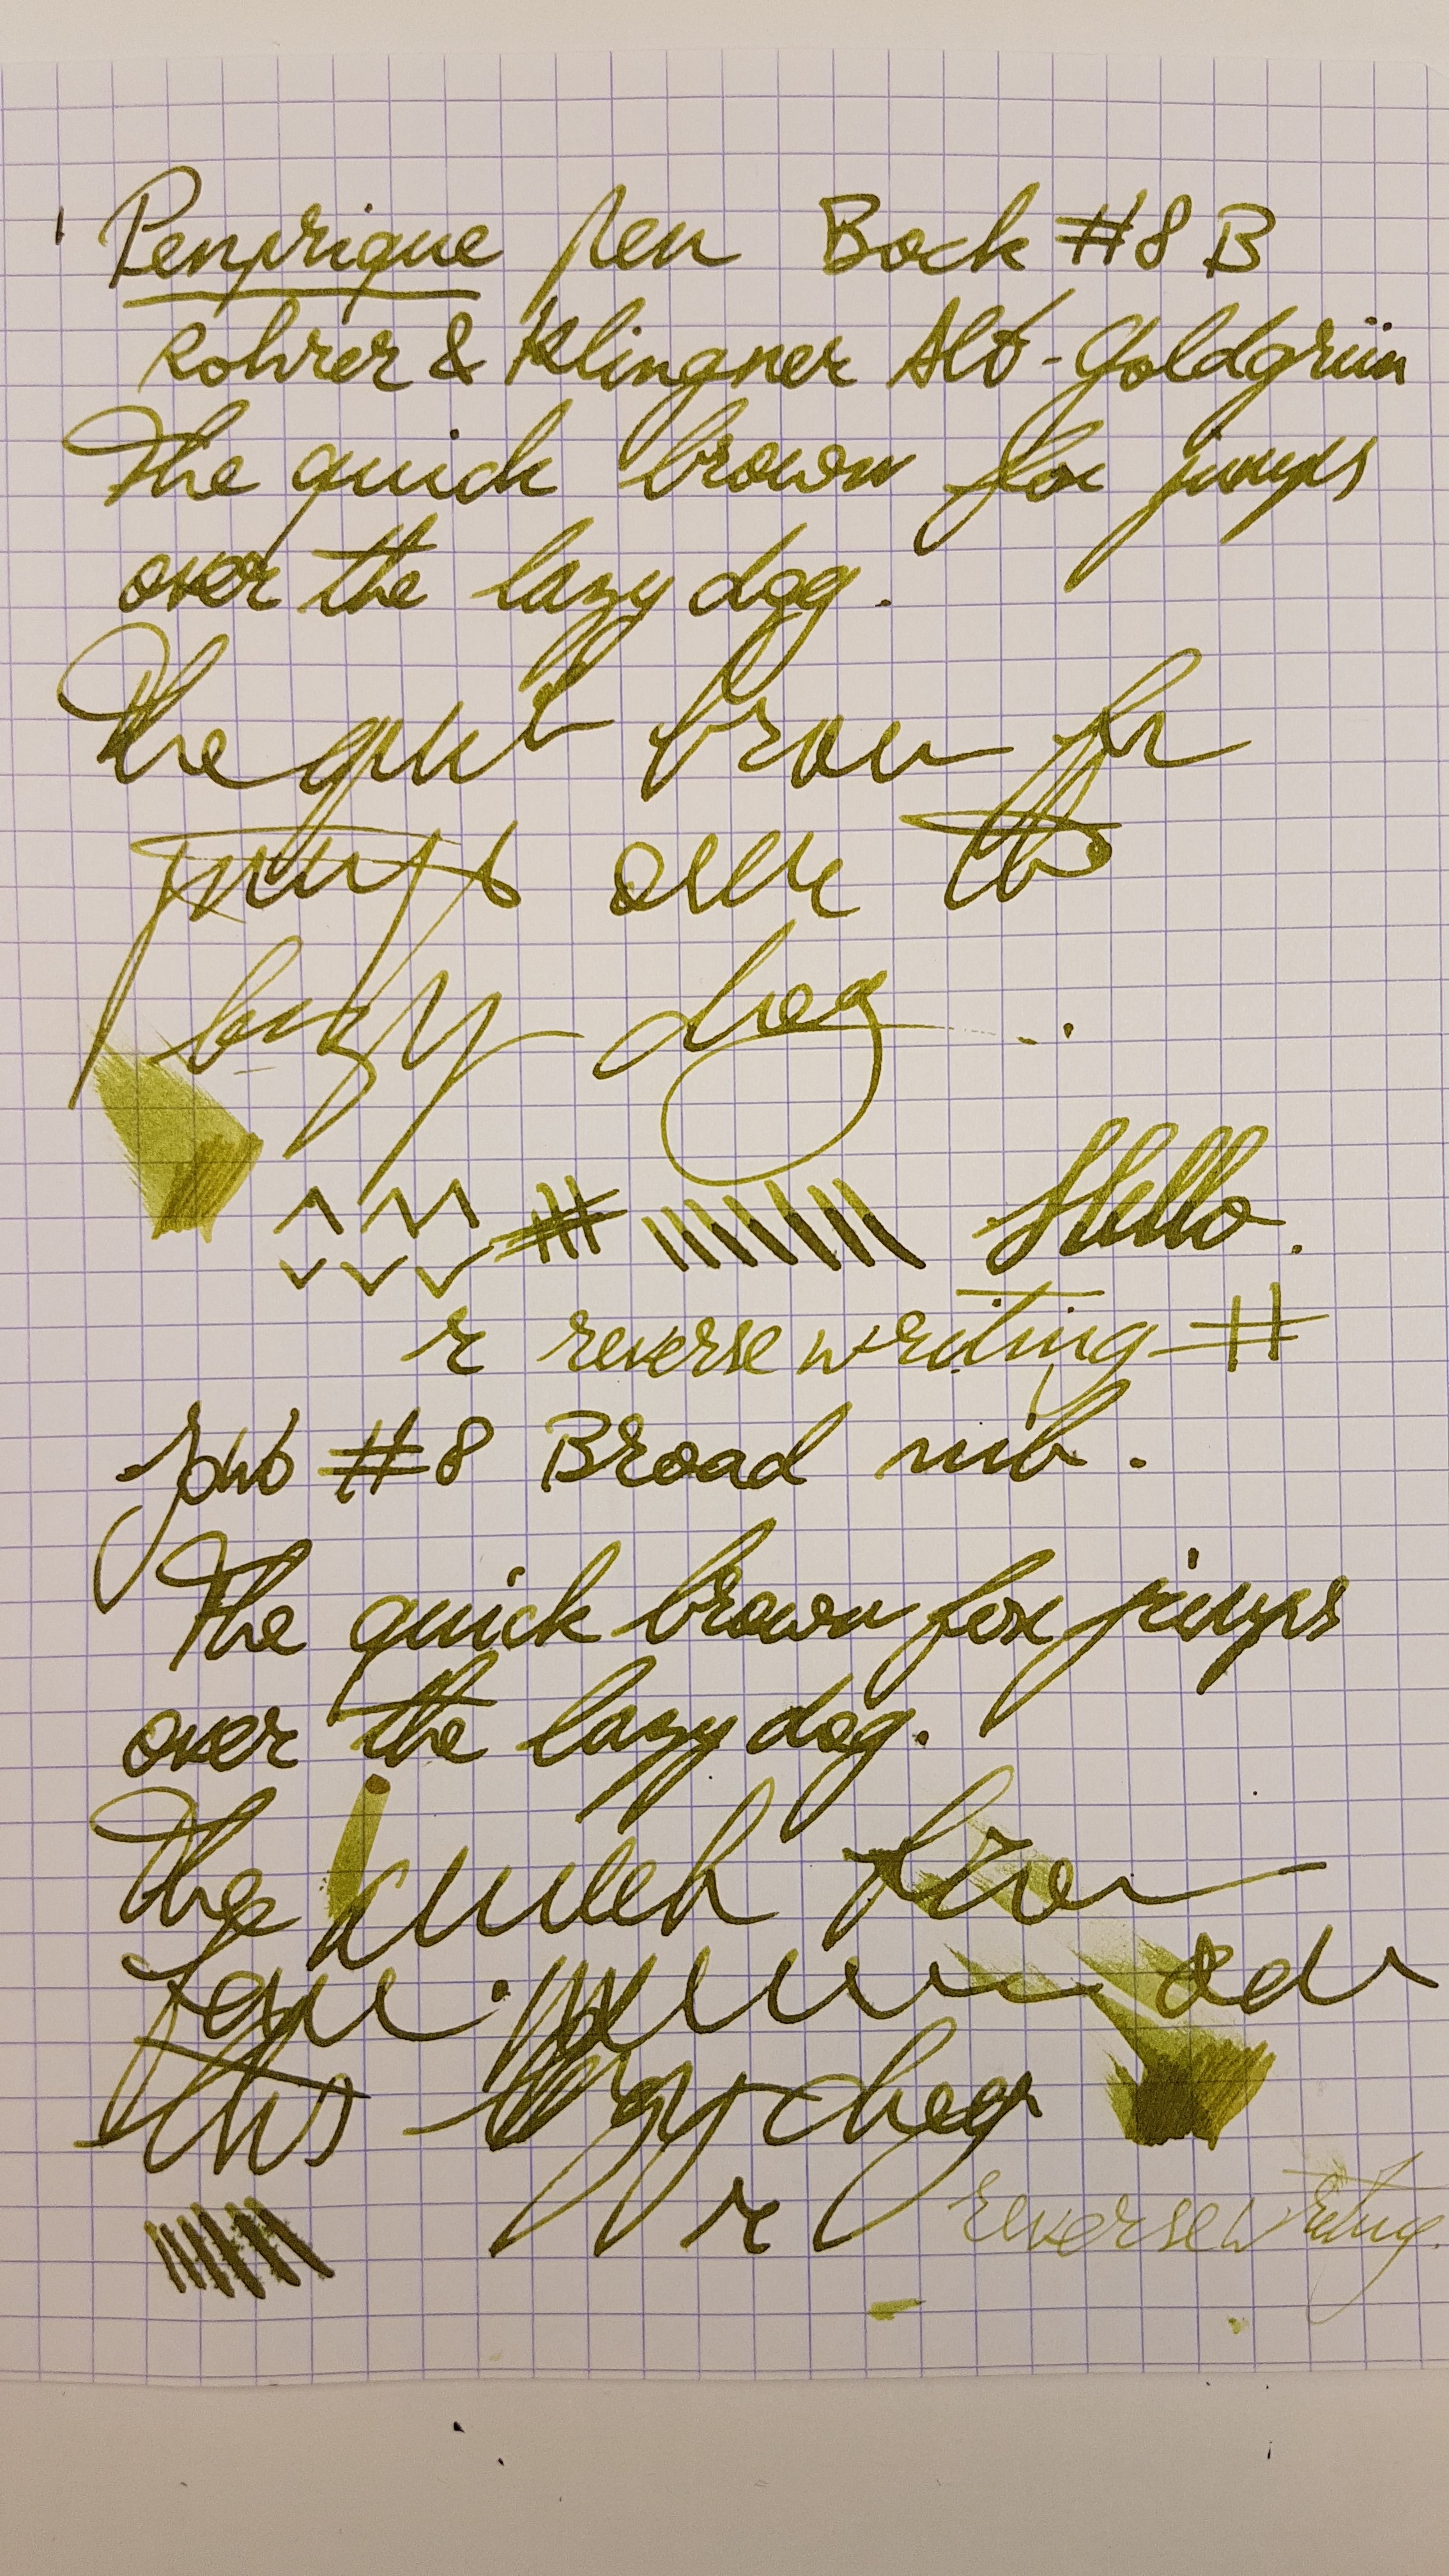 Penprique pen Bock #8 B
Rohrer & Klingner Alt-Goldgrün
The quick brown fox jumps
over the lazy dog.
The quick brown fox
jumps over the
lazy dog
Hello.
r reverse writing #
JoWo #8 Broad nib.
The quick brown fox jumps
over the lazy dog.
The quick brown
fox
the lazy dog
r reverse writing.